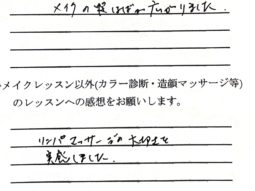 メイクの幅はばが広がりました。
メイクレッスン以外(カラー診断・造顔マッサージ等)
のレッスンへの感想をお願いします。
リンパマッサージの大切さを
実感しました。